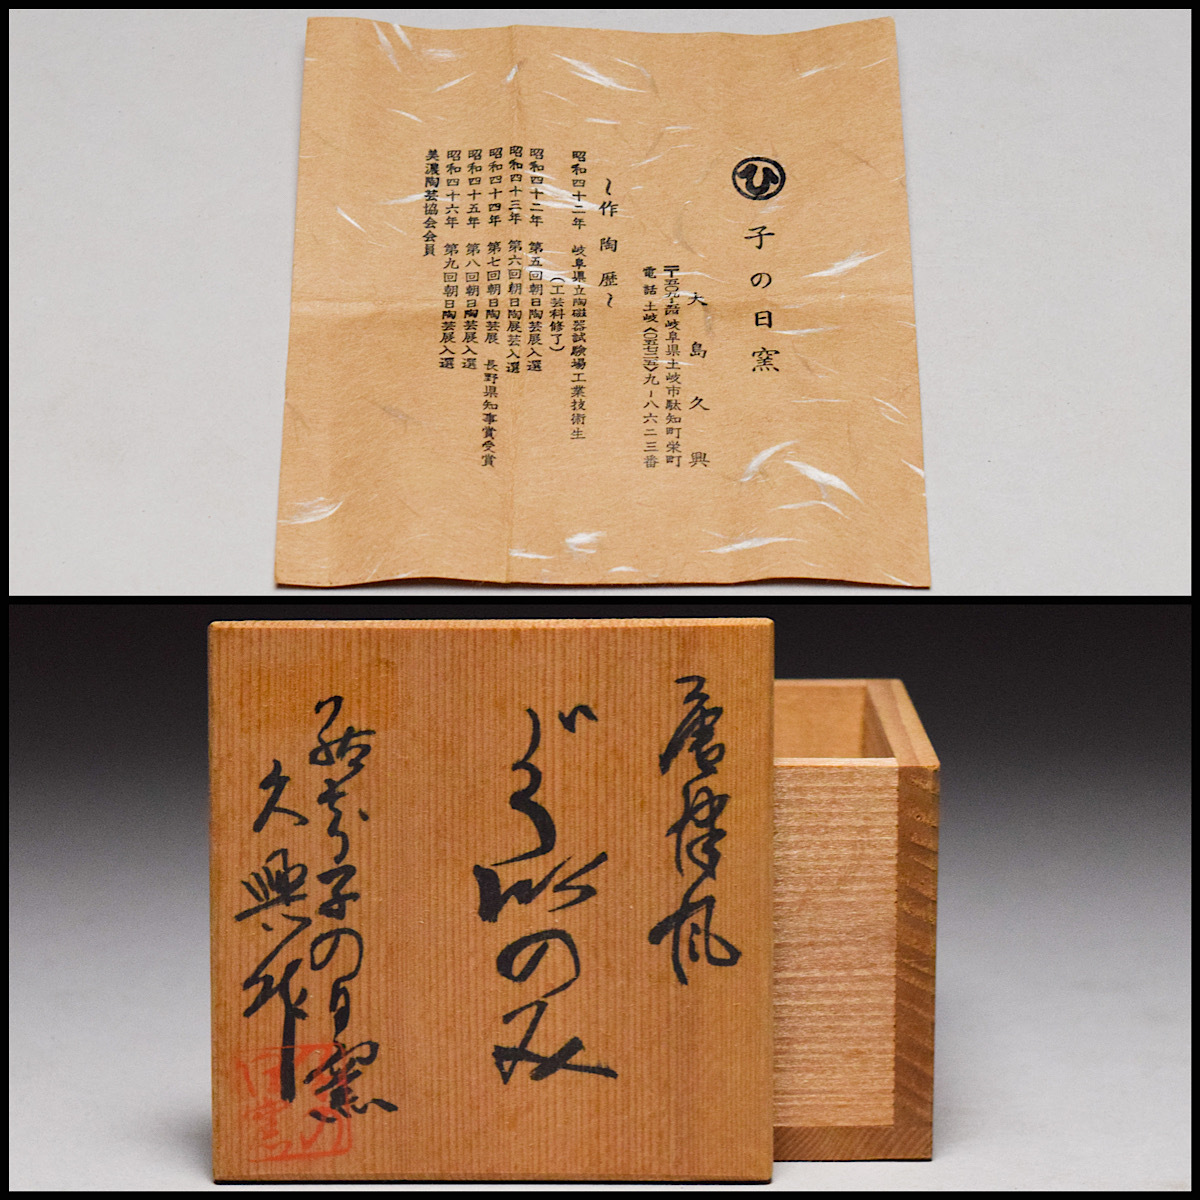 ひ 子の日窯
大島久興
〒五〇九-五四 岐阜県土岐市駄知町栄町
電話 土岐〈〇五七二五〉九-八六二三番
~作陶歴~
昭和四十二年 岐阜県立陶磁器試験場工業技術生
(工芸科修了)
昭和四十二年 第五回朝日陶芸展入選
昭和四十三年 第六回朝日陶展芸入選
昭和四十四年 第七回朝日陶芸展 長野県知事賞受賞
昭和四十五年 第八回朝日陶芸展入選
昭和四十六年 第九回朝日陶芸展入選
美濃陶芸協会会員
唐津風
ぐゐのみ
子の日窯
久興作